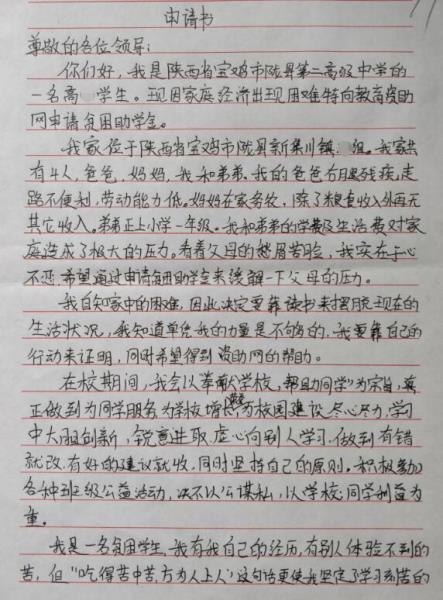 申请书
尊敬的各位领导：
你们好，我是陕西省宝鸡市陇县第二高级中学的
一名高 学生。现因家庭经济出现困难特向教育资助
网申请贫困助学金。
我家位于陕西省宝鸡市陇县新集川镇 组。我家共
有4人，爸爸，妈妈，我和弟弟。我的爸爸右腿残疾，走
路不便利，劳动能力低。妈妈在家务农，除了粮食收入外再无
其它收入。弟弟正上小学一年级。我和弟弟的学费及生活费对家
庭造成了极大的压力。看着父母的愁眉苦脸，我实在于心
不忍，希望通过申请贫困助学金来缓解一下父母的压力。
我自知家中的困难，因此决定要靠读书来摆脱现在的
生活状况，我知道单凭我的力量是不够的，我要靠自己的
行动来证明，同时希望得到资助网的帮助。
在校期间，我会以“奉献学校，帮助同学”为宗旨，真
正做到为同学服务，为学校增长 为校园建设尽心尽力，学习
中大胆创新，锐意进取，虚心向别人学习，做到有错
就改，有好的建议就收，同时坚持自己的原则。积极参加
各种班级公益活动，决不以公谋私，以学校、同学利益为
重。
我是一名贫困学生，我有我自己的经历，有别人体验不到的
苦，但“吃得苦中苦，方为人上人”，这句话更使我坚定了学习刻苦的